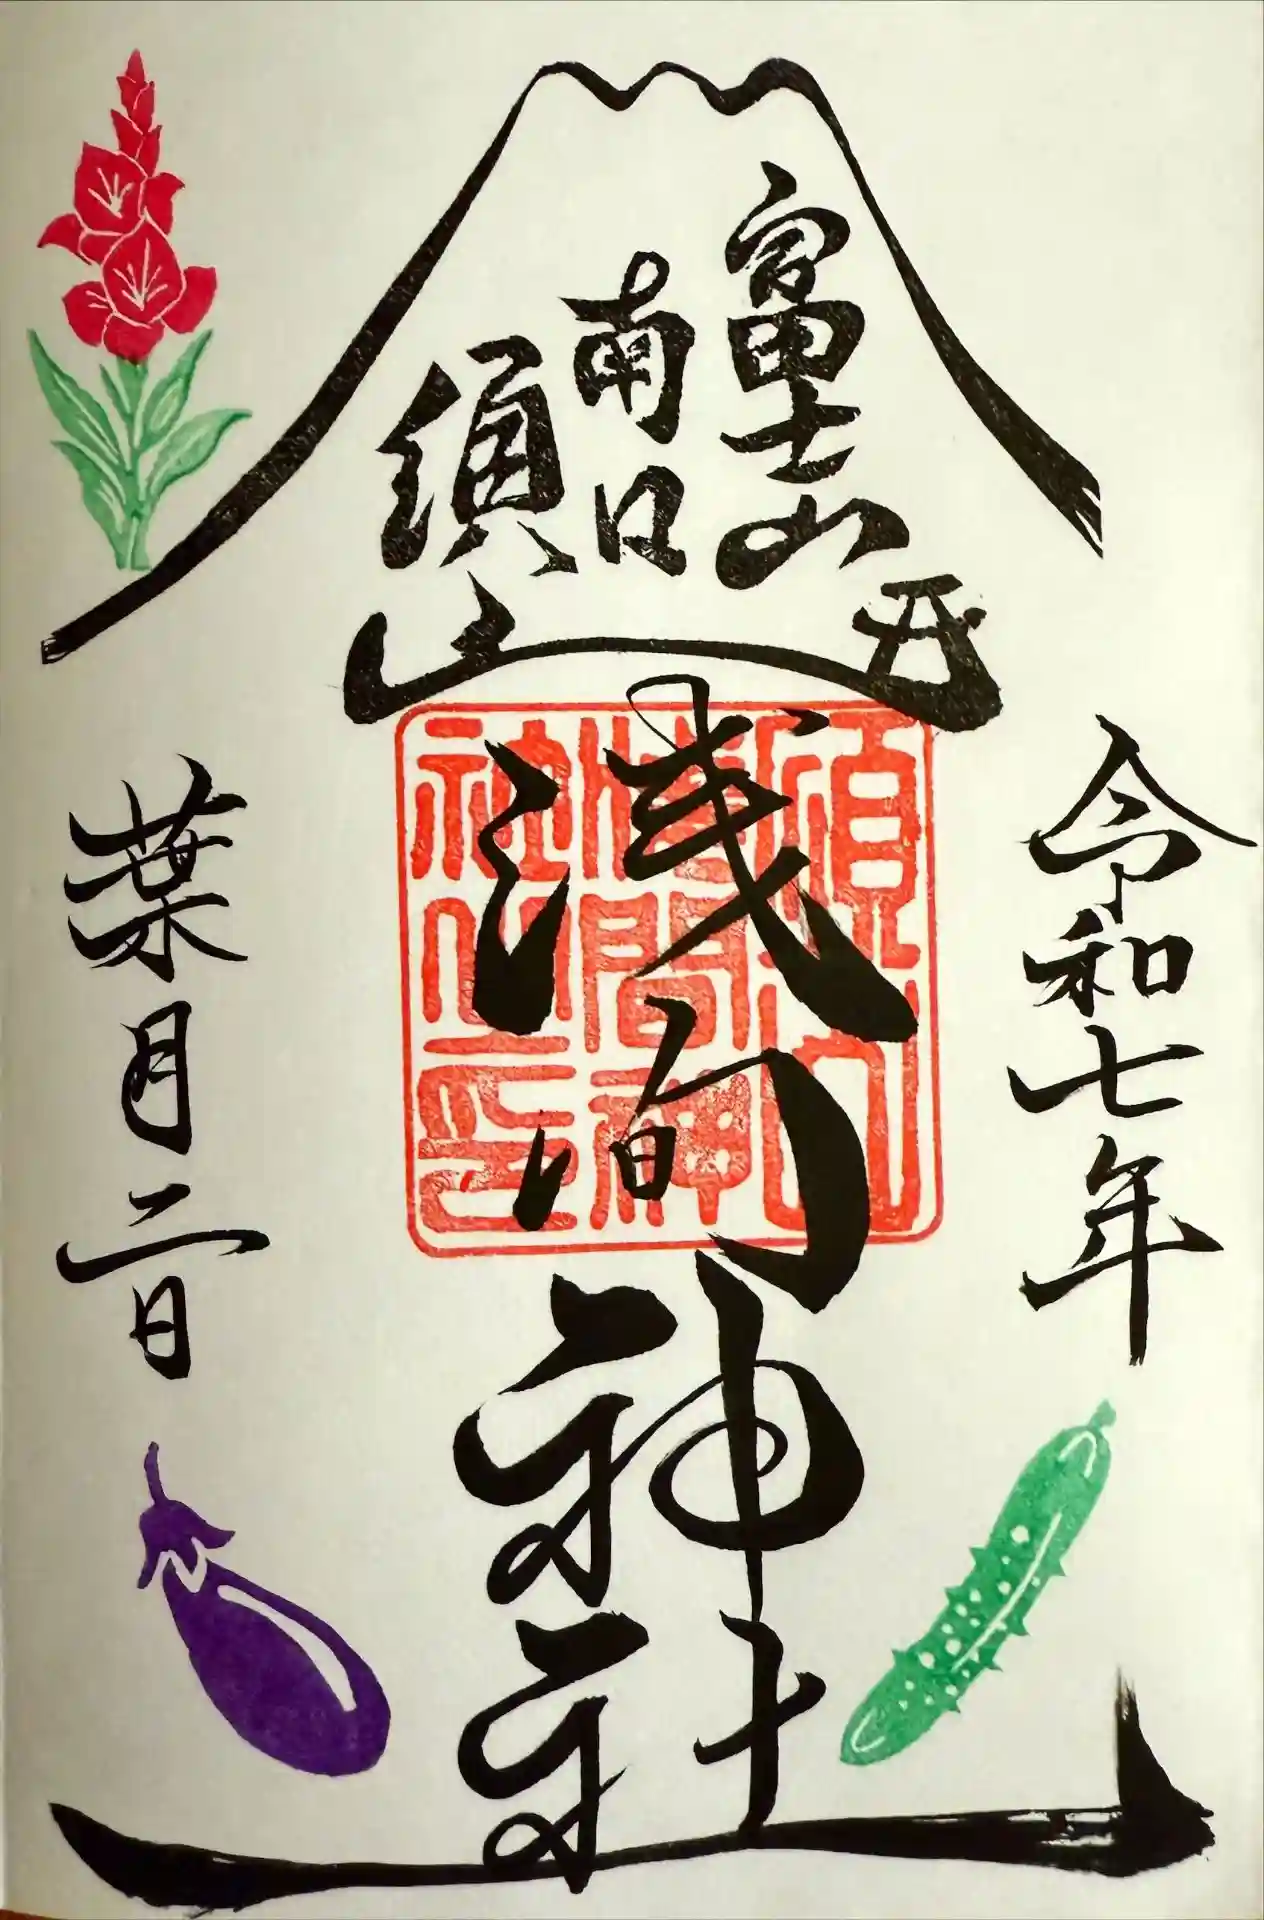 令和七年
富士山
南口
須山
浅間神社
須山
浅間神
社之印
葉月二日